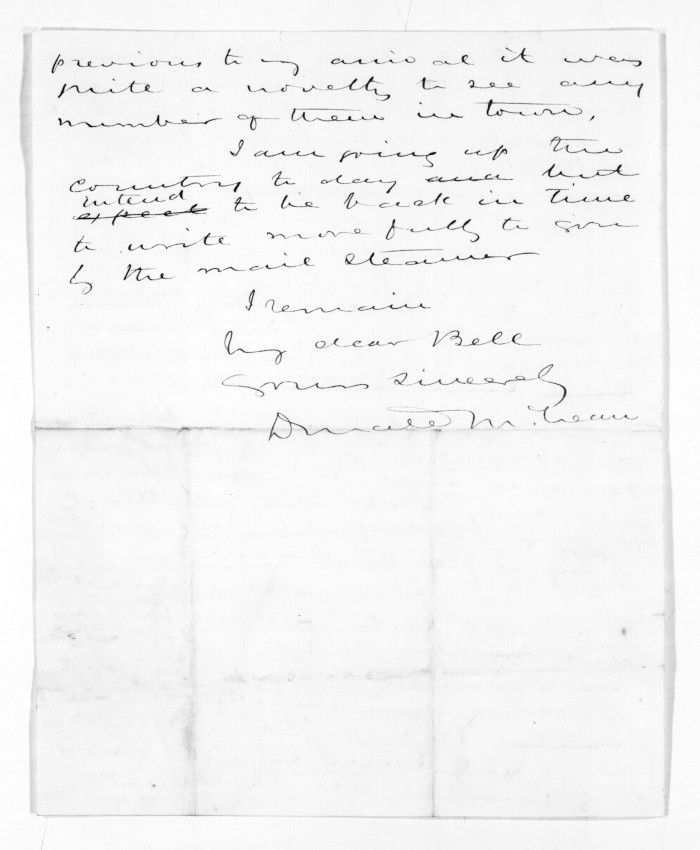 previous to my arrival it was
quite a novelty to see any
number of them in town.
I am going up the
Country to day and but
intend
expect to be back in time
to write more fully to you
by the mail steamer
I remain
My dear Bell
yours sincerely
Donald McLean